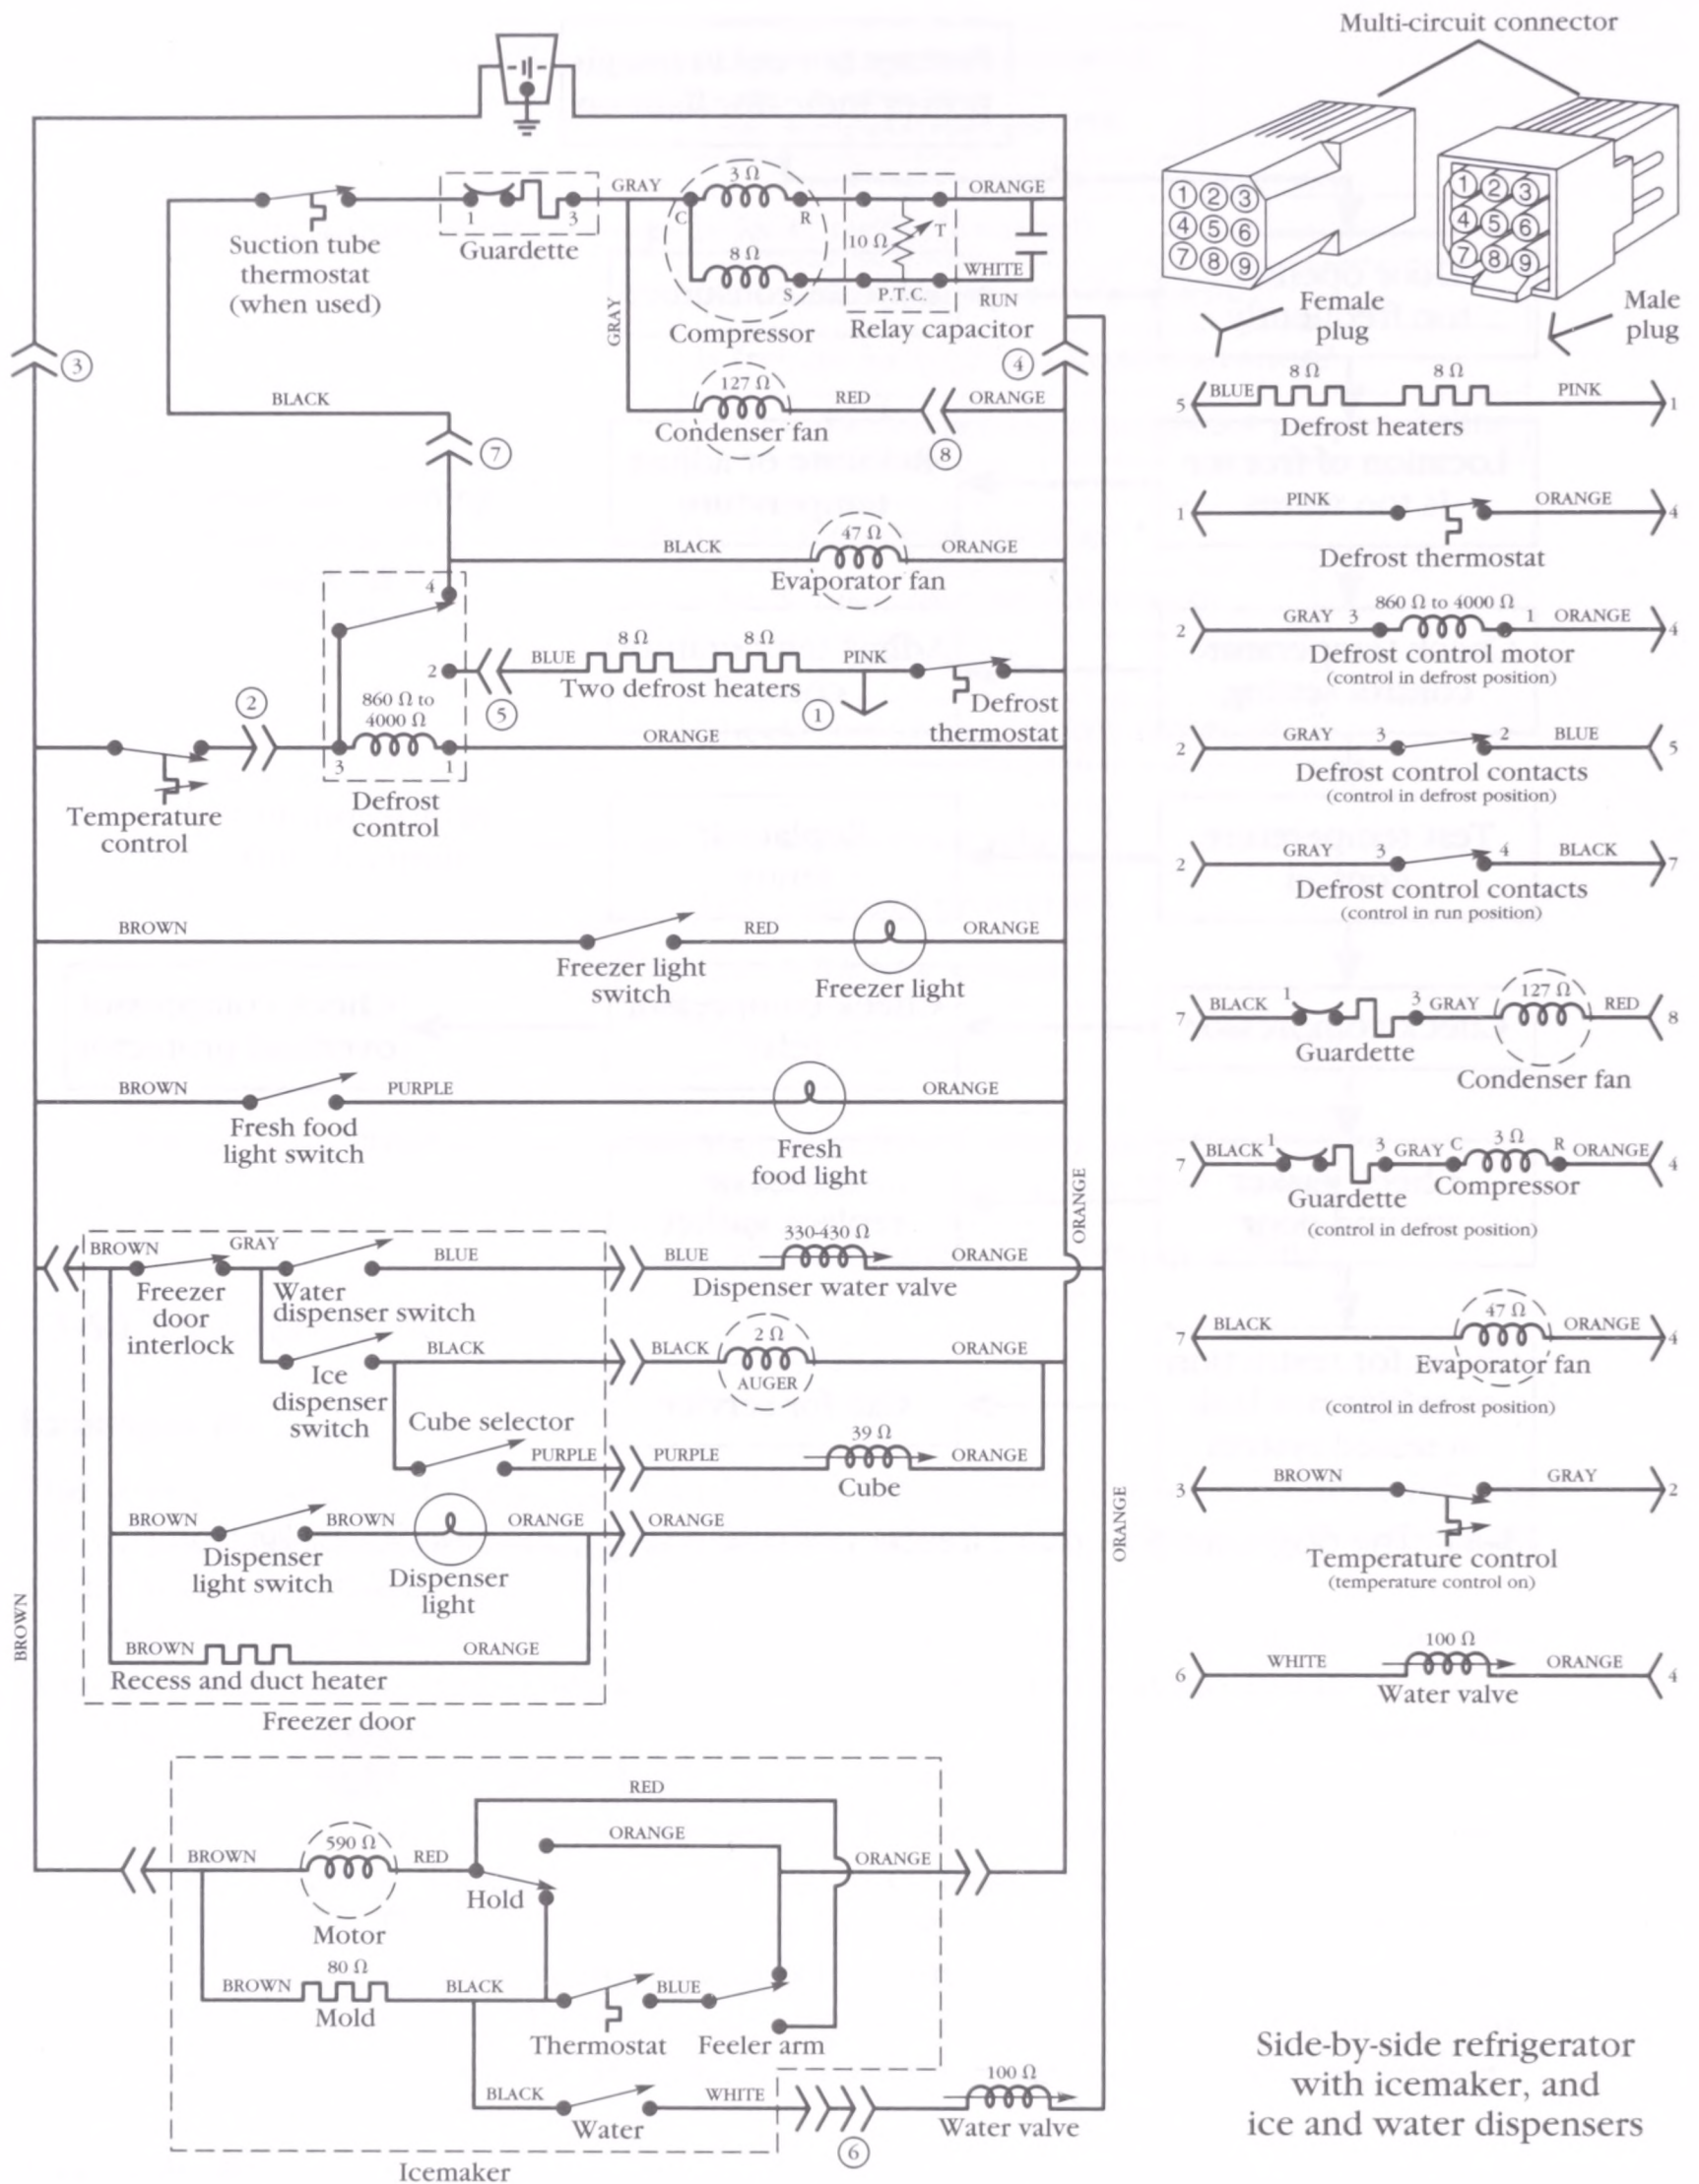 Multi-circuit connector
1 2 3
4 5 6
7 8 9
1 2 3
4 5 6
7 8 9
Female
plug
Male
plug
3
Suction tube
thermostat
(when used)
1
3
Guardette
GRAY
GRAY
C
3 Ω
R
8 Ω
S
Compressor
10 Ω
T
P.T.C.
ORANGE
WHITE
RUN
Relay capacitor
4
127 Ω
RED
ORANGE
Condenser fan
8
BLACK
7
BLACK
47 Ω
ORANGE
Evaporator fan
4
2
5
BLUE
8 Ω
8 Ω
Two defrost heaters
PINK
1
Defrost
thermostat
2
860 Ω to
4000 Ω
3
1
ORANGE
Temperature
control
Defrost
control
BROWN
RED
ORANGE
Freezer light
switch
Freezer light
BROWN
PURPLE
ORANGE
Fresh food
light switch
Fresh
food light
ORANGE
BROWN
GRAY
BLUE
BLUE
330-430 Ω
ORANGE
Freezer
door
interlock
Water
dispenser switch
Dispenser water valve
BLACK
BLACK
2 Ω
AUGER
ORANGE
Ice
dispenser
switch
Cube selector
PURPLE
PURPLE
39 Ω
ORANGE
Cube
BROWN
BROWN
ORANGE
ORANGE
Dispenser
light switch
Dispenser
light
ORANGE
BROWN
BROWN
ORANGE
Recess and duct heater
Freezer door
RED
ORANGE
BROWN
590 Ω
RED
ORANGE
Hold
Motor
BROWN
80 Ω
BLACK
BLUE
Mold
Thermostat
Feeler arm
BLACK
WHITE
100 Ω
Water
6
Water valve
Icemaker
5
BLUE
8 Ω
8 Ω
PINK
1
Defrost heaters
1
PINK
ORANGE
4
Defrost thermostat
2
GRAY
3
860 Ω to 4000 Ω
1
ORANGE
4
Defrost control motor
(control in defrost position)
2
GRAY
3
2
BLUE
5
Defrost control contacts
(control in defrost position)
2
GRAY
3
4
BLACK
7
Defrost control contacts
(control in run position)
7
BLACK
1
3
GRAY
127 Ω
RED
8
Guardette
Condenser fan
7
BLACK
1
3
GRAY
C
3 Ω
R
ORANGE
4
Guardette
Compressor
(control in defrost position)
7
BLACK
47 Ω
ORANGE
4
Evaporator fan
(control in defrost position)
3
BROWN
GRAY
2
Temperature control
(temperature control on)
6
WHITE
100 Ω
ORANGE
4
Water valve
Side-by-side refrigerator
with icemaker, and
ice and water dispensers